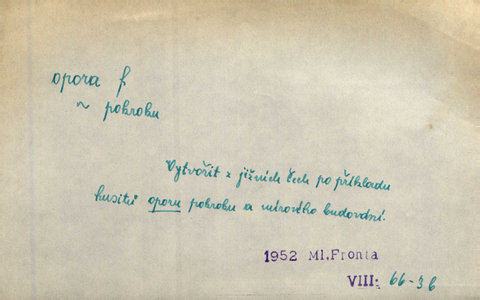 opora f
~ pokroku
Vytvořit z jižních Čech po příkladu
husitů oporu pokroku a mírového budování.
1952 Ml.Fronta
VIII: 66-36